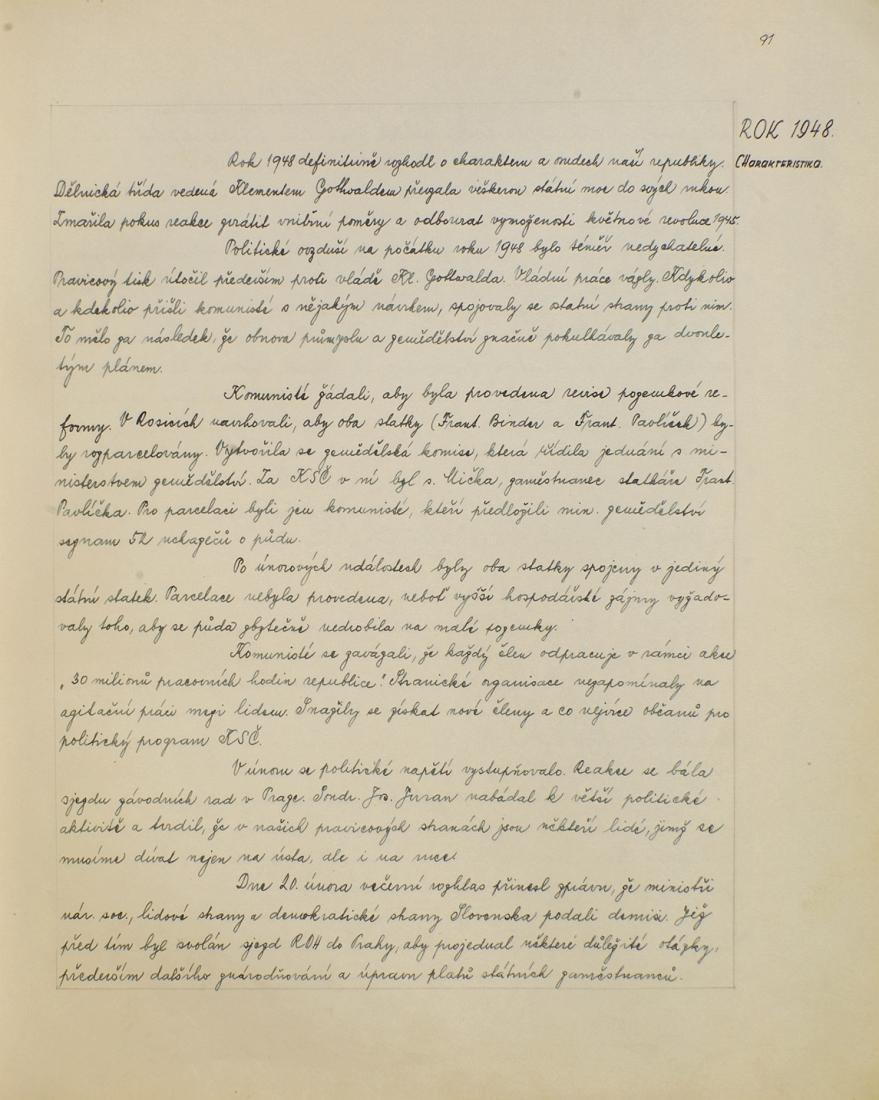 91
ROK 1948.
CHARAKTERISTIKA.
Rok 1948 definitivně rozhodl o charakteru a osudech naší republiky.
Dělnická třída vedená Klementem Gottwaldem převzala veškerou státní moc do svých rukou.
Zmařila pokus reakce zvrátit vnitřní poměry a odbourat vymoženosti květnové revoluce 1945.
Politické ovzduší na počátku roku 1948 bylo téměř nedýchatelné.
Pravicový tisk útočil především proti vládě Kl. Gottwalda. Vládní práce vázly. Kdykoliv
a kdekoliv přišli komunisté s nějakým návrhem, spojovaly se ostatní strany proti nim.
To mělo za následek, že obnova průmyslu a zemědělství značně pokulhávaly za dvoule-
tým plánem.
Komunisté žádali, aby byla provedena revise pozemkové re-
formy. V Rosicích navrhovali, aby oba statky (Frant. Binder a Frant. Pavlíček) by-
ly rozparcelovány. Vytvořila se zemědělská komise, která řídila jednání s mi-
nisterstvem zemědělství. Za KSČ v ní byl s. Mička, zaměstnanec statkáře Frant.
Pavlíčka. Pro parcelaci byli jen komunisté, kteří předložili min. zemědělství
seznam 52 uchazečů o půdu.
Po únorových událostech byly oba statky spojeny v jediný
státní statek. Parcelace nebyla provedena, neboť vyšší hospodářské zájmy vyžado-
valy toho, aby se půda zbytečně nedrobila na malé pozemky.
Komunisté se zavázali, že každý člen odpracuje v rámci akce
„30 milionů pracovních hodin republice". Stranické organisace nezapomínaly na
agitační práci mezi lidem. Snažily se získat nové členy a co nejvíce občanů pro
politický program KSČ.
V únoru se politické napětí vystupňovalo. Reakce se bála
sjezdu závodních rad v Praze. Soudr. Jos. Juran nabádal k větší politické
aktivitě a tvrdil, že v našich pravicových stranách jsou někteří lidé, jimž se
musíme dívat nejen na ústa, ale i na ruce!
Dne 20. února večerní rozhlas přinesl zprávu, že ministři
nár. soc., lidové strany a demokratické strany Slovenska podali demisi. Již
před tím byl svolán sjezd ROH do Prahy, aby projednal některé důležité otázky,
především dalšího znárodňování a úpravu platů státních zaměstnanců.